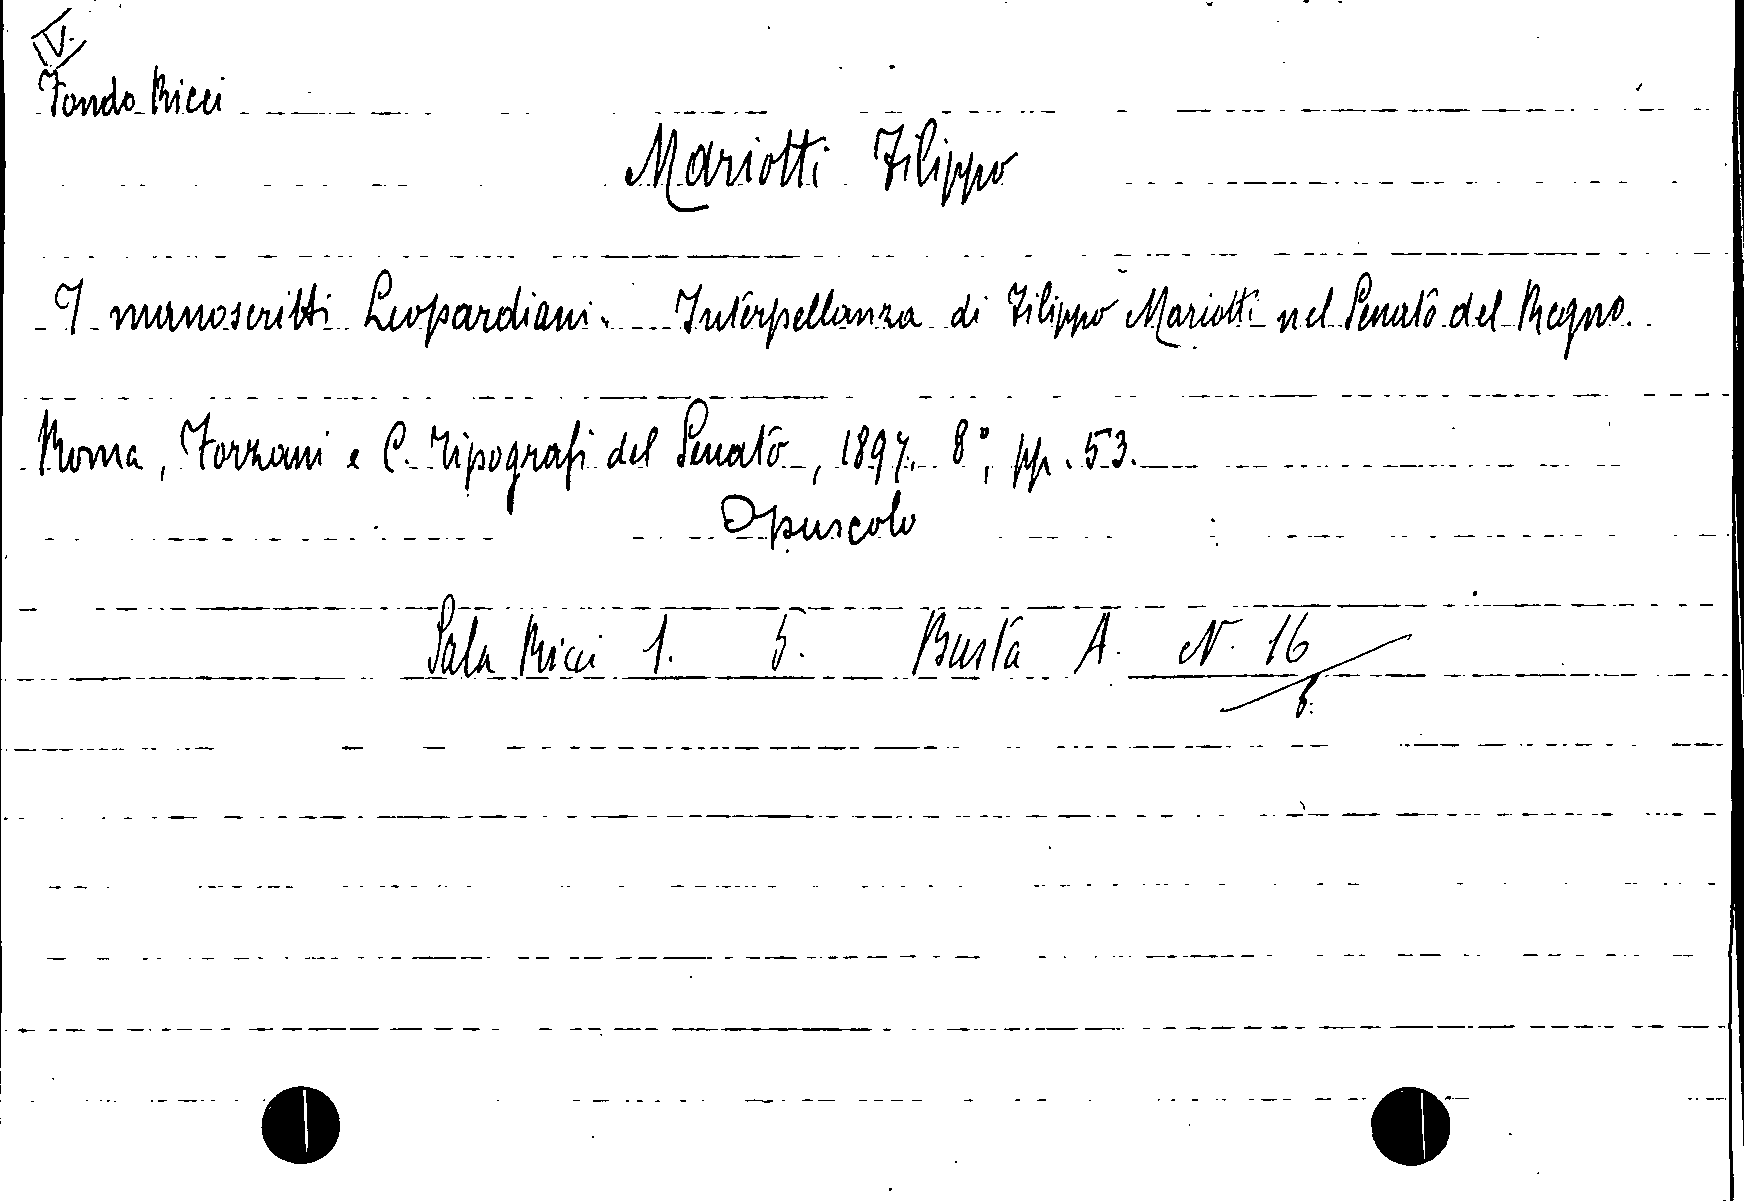 IV.
Fondo Ricci
Mariotti Filippo
I manoscritti Leopardiani. Interpellanza di Filippo Mariotti nel Senato del Regno.
Roma, Forzani e C. Tipografi del Senato, 1897. 8°, pp. 53.
Opuscolo
Sala Ricci 1. 5. Busta A. N. 16
6.